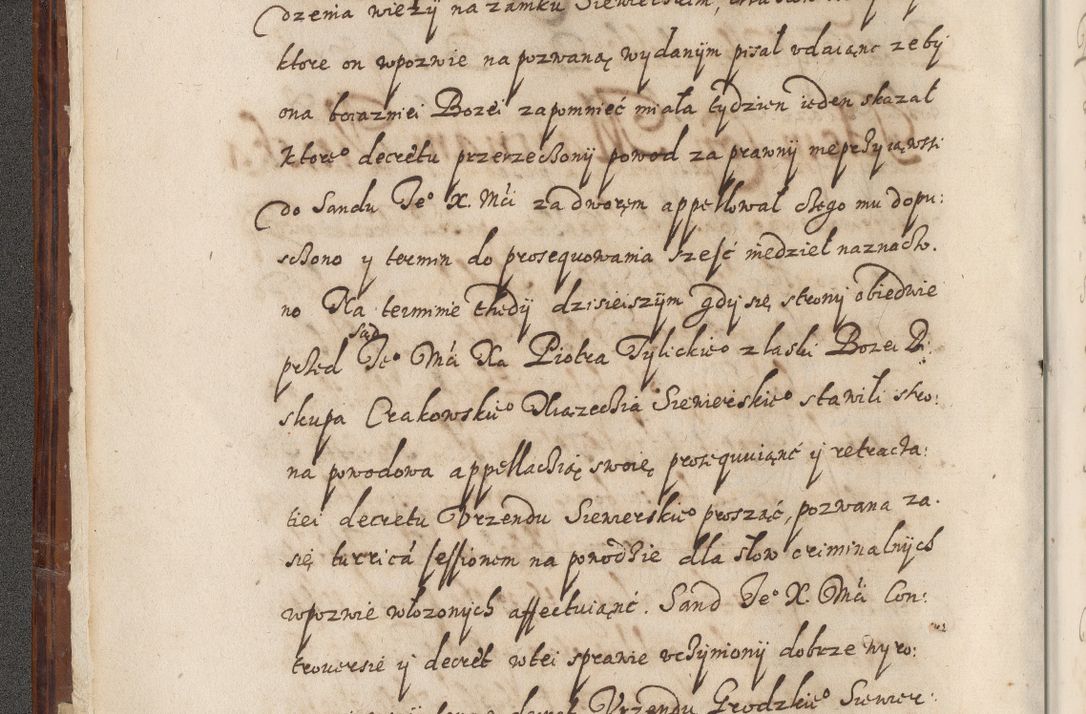 dzenia wiezÿ na zamku Siewierskim,
ktore on wpozwie na pozwaną wydanÿm pisał vdaiąnc zebÿ
ona boiazniei Bozei zapomniec miała tÿdzien ieden skazał
ktore° decretu przerzeczonÿ powod za prawnÿ nieprzyiąwszi
do Sandu Je° X. Mći za dworęm appellował czego mu dopu:
sczono y termin do prosequowania szesc niedziel naznaczo.
no Na terminie thedÿ dzisieiszÿm gdÿ się stronÿ obiedwie
przed sąd Je° Mći Xa Piotra Tÿlickie° z łaski Bozei Bi:
skupa Crakowskie° Xiazęchia Siewierskie° stawili stro:
na powodowa appellachią swoię prosequuiąnc ÿ retracta:
tiei decretu Vrzendu Siewierskie° prosząc, pozwana za.
się turricá sessionem na powodzie dla słow criminalnÿch
wpozwie włozonÿch affectuiąnć. Sand Je° X. Mći Con:
trouersie ÿ decrèt wtei sprawie vczÿnionÿ dobrze wyro:
decret Vrzendu Grodzkie° Siewier: